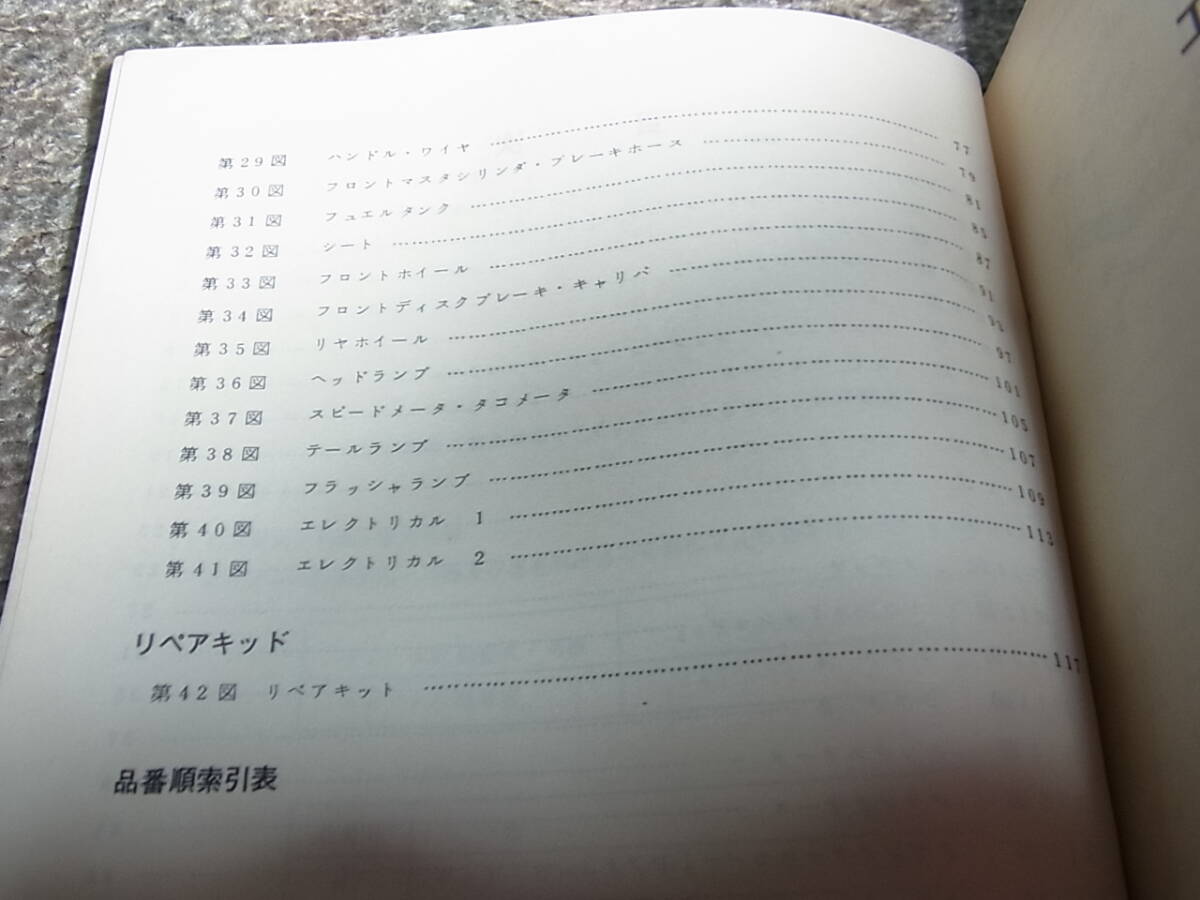 第29図 ハンドル・ワイヤ ………………………… 77
第30図 フロントマスタシリンダ・ブレーキホース ………………………… 79
第31図 フュエルタンク ………………………… 81
第32図 シート ………………………… 85
第33図 フロントホイール ………………………… 87
第34図 フロントディスクブレーキ・キャリパ ………………………… 91
第35図 リヤホイール ………………………… 95
第36図 ヘッドランプ ………………………… 97
第37図 スピードメータ・タコメータ ………………………… 101
第38図 テールランプ ………………………… 105
第39図 フラッシャランプ ………………………… 107
第40図 エレクトリカル 1 ………………………… 109
第41図 エレクトリカル 2 ………………………… 113
リペアキッド
第42図 リペアキット ………………………… 117
品番順索引表